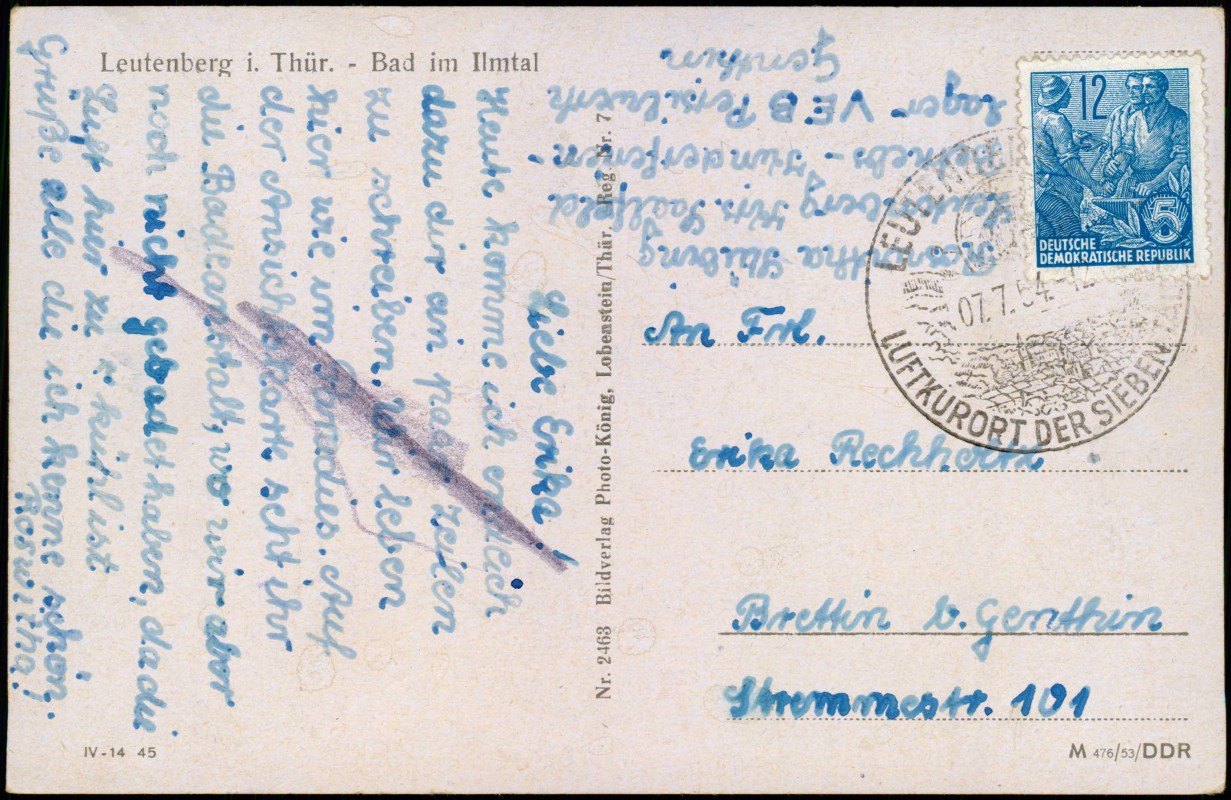 Leutenberg i. Thür. - Bad im Ilmtal
Liebe Erika!
Heute komme ich endlich
dazu dir ein paar Zeilen
zu schreiben. Wir leben
hier wie im Paradies. Auf
der Ansichtskarte seht ihr
die Badeanstalt, wo wir aber
noch nicht gebadet haben, da die
Luft hier zu kühl ist
Grüße alle die ich kenne schon.
Roswitha!
Nr. 2463 Bildverlag Photo-König, Lobenstein/Thür. Reg. Nr. 7
Roswitha
Leutenberg Krs. Saalfeld
Betriebs-
Lager VEB Persilwerk
Genthin
12
5
DEUTSCHE
DEMOKRATISCHE REPUBLIK
07.7.54.-12
LUFTKURORT DER SIEBEN
An Frl.
Erika
Brettin b. Genthin
Stremmestr. 101
IV-14 45
M 476/53/DDR